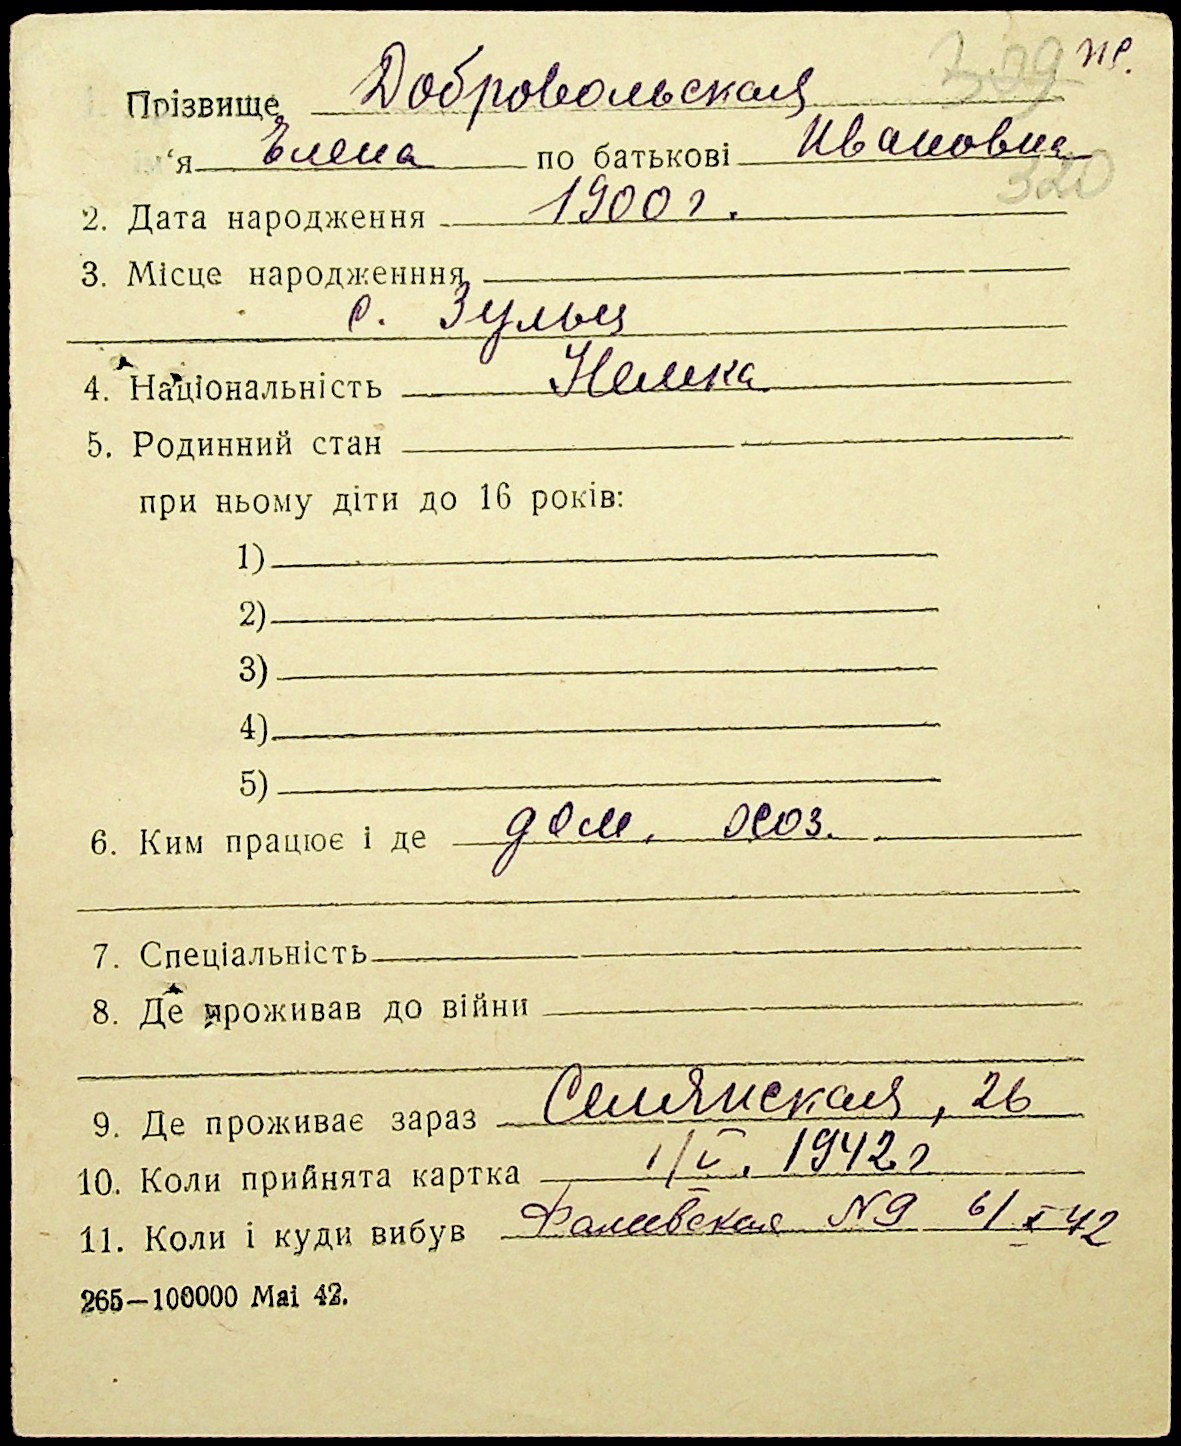 329 ж.
1. Прізвище Добровольская
ім‘я Елена по батькові Ивановна
320
2. Дата народження 1900 г.
3. Місце народженння
с. Зульц
4. Національність Немка
5. Родинний стан
при ньому діти до 16 років:
1)
2)
3)
4)
5)
6. Ким працює і де дом. хоз.
7. Спеціальність
8. Де проживав до війни
9. Де проживає зараз Селянская, 26
10. Коли прийнята картка 1/V. 1942 г
11. Коли і куди вибув Фалеевская № 9 6/X 42
265—100000 Mai 42.